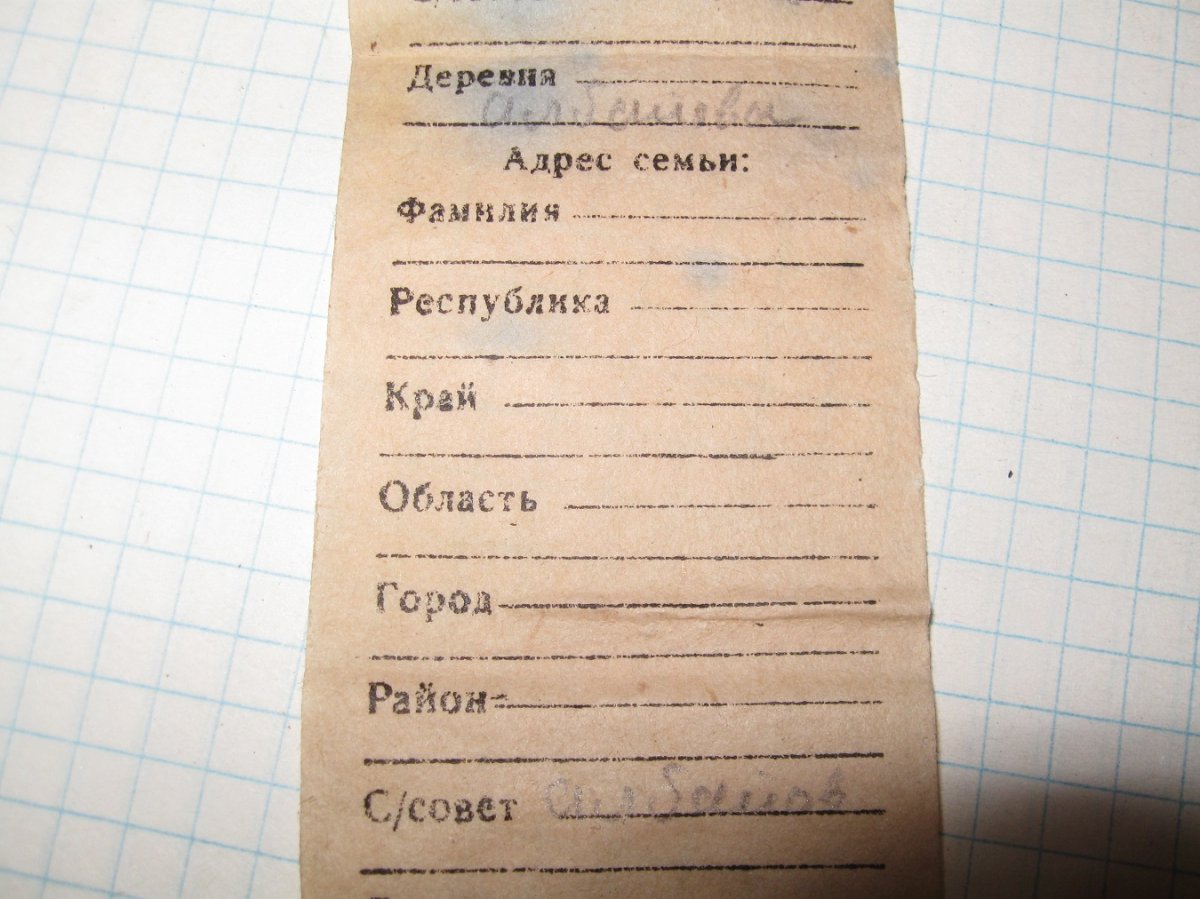 С/совет
Деревня
Адрес семьи:
Фамилия
Республика
Край
Область
Город
Район
С/совет